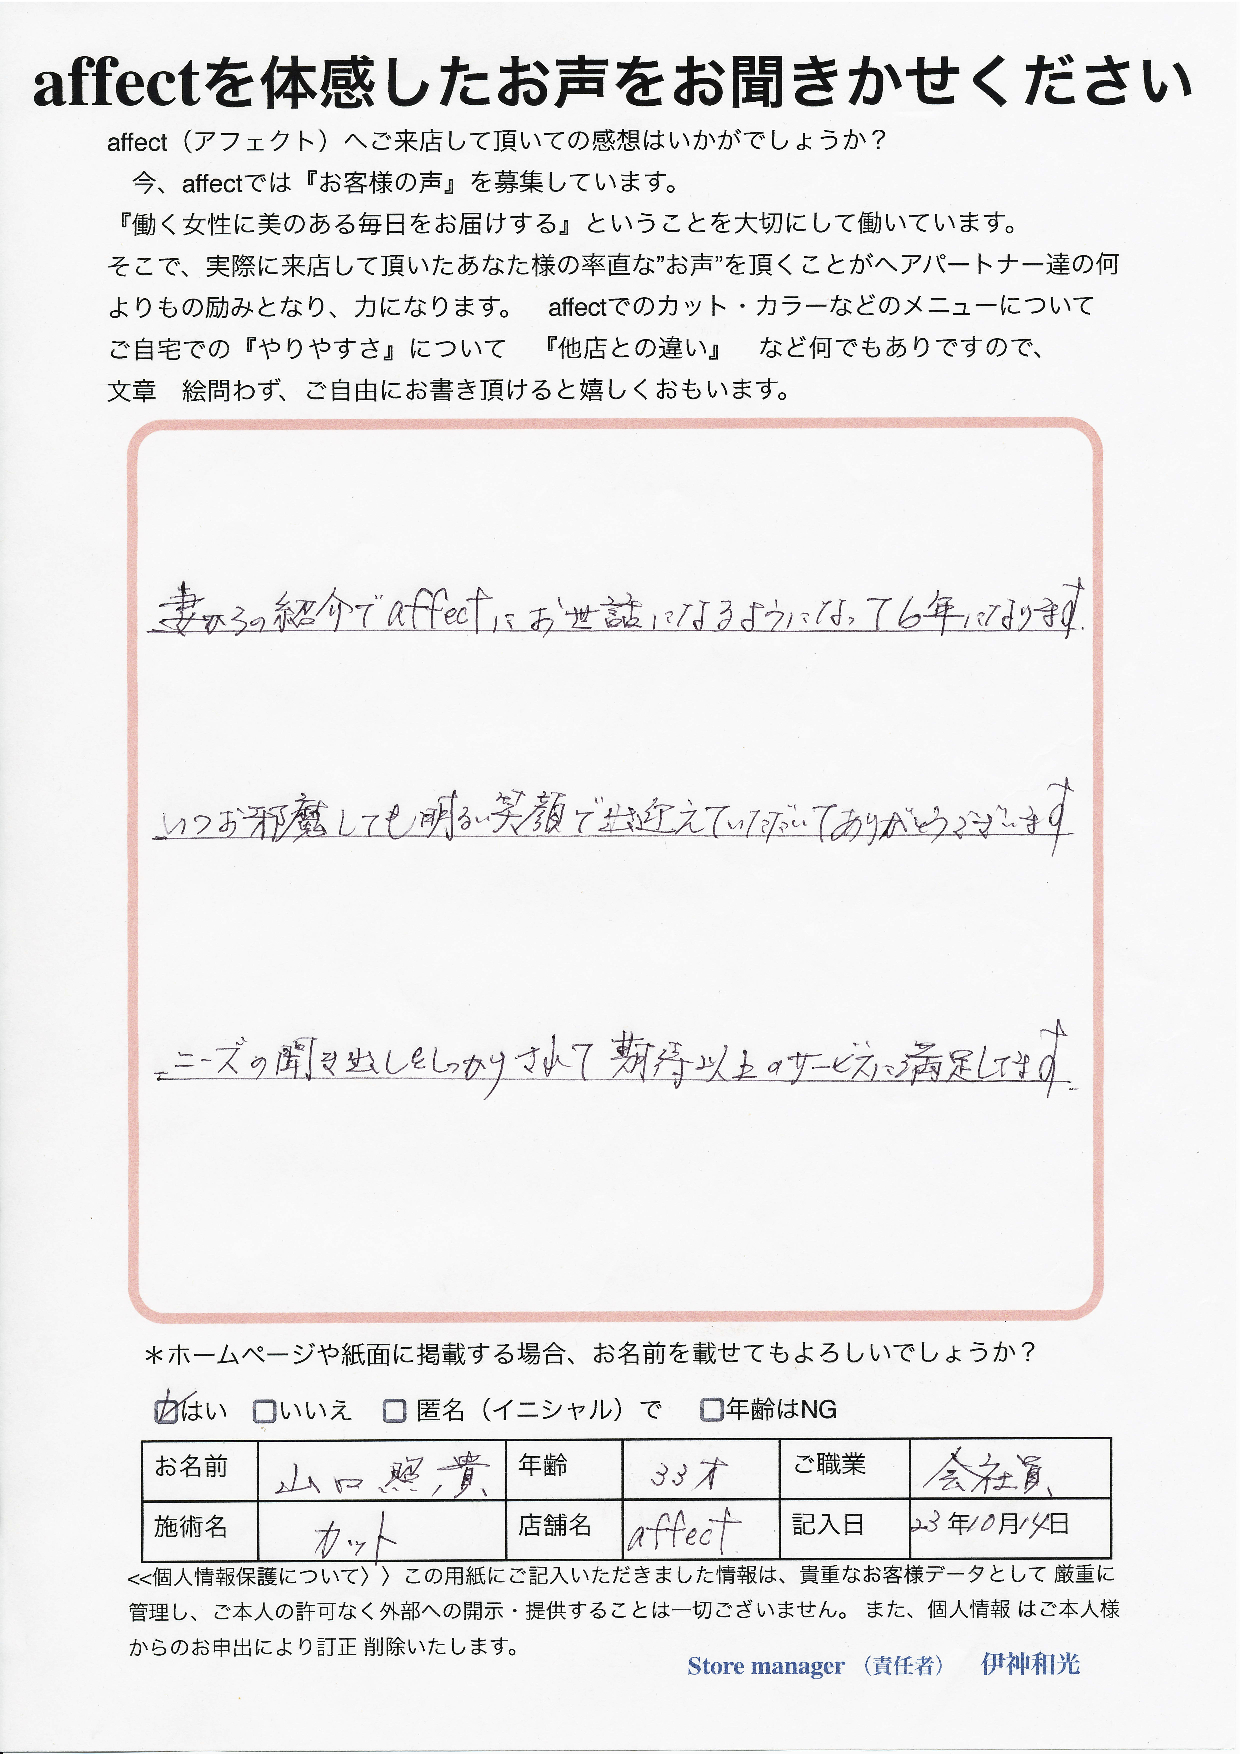 affectを体感したお声をお聞きかせください
affect（アフェクト）へご来店して頂いての感想はいかがでしょうか？
今、affectでは『お客様の声』を募集しています。
『働く女性に美のある毎日をお届けする』ということを大切にして働いています。
そこで、実際に来店して頂いたあなた様の率直な”お声”を頂くことがヘアパートナー達の何
よりもの励みとなり、力になります。　affectでのカット・カラーなどのメニューについて
ご自宅での『やりやすさ』について　『他店との違い』　など何でもありですので、
文章　絵問わず、ご自由にお書き頂けると嬉しくおもいます。
妻からの紹介でaffectにお世話になるようになって6年になります.
いつお邪魔しても明るい笑顔で出迎えていただいてありがとうございます
ニーズの聞き出しをしっかりされて期待以上のサービスに満足してます
＊ホームページや紙面に掲載する場合、お名前を載せてもよろしいでしょうか？
はい　いいえ　匿名（イニシャル）で　年齢はNG
お名前 山口照貴 年齢 33才 ご職業 会社員
施術名 カット 店舗名 affect 記入日 23年10月14日
<<個人情報保護について〉〉この用紙にご記入いただきました情報は、貴重なお客様データとして 厳重に
管理し、ご本人の許可なく外部への開示・提供することは一切ございません。 また、個人情報 はご本人様
からのお申出により訂正 削除いたします。
Store manager （責任者）　伊神和光